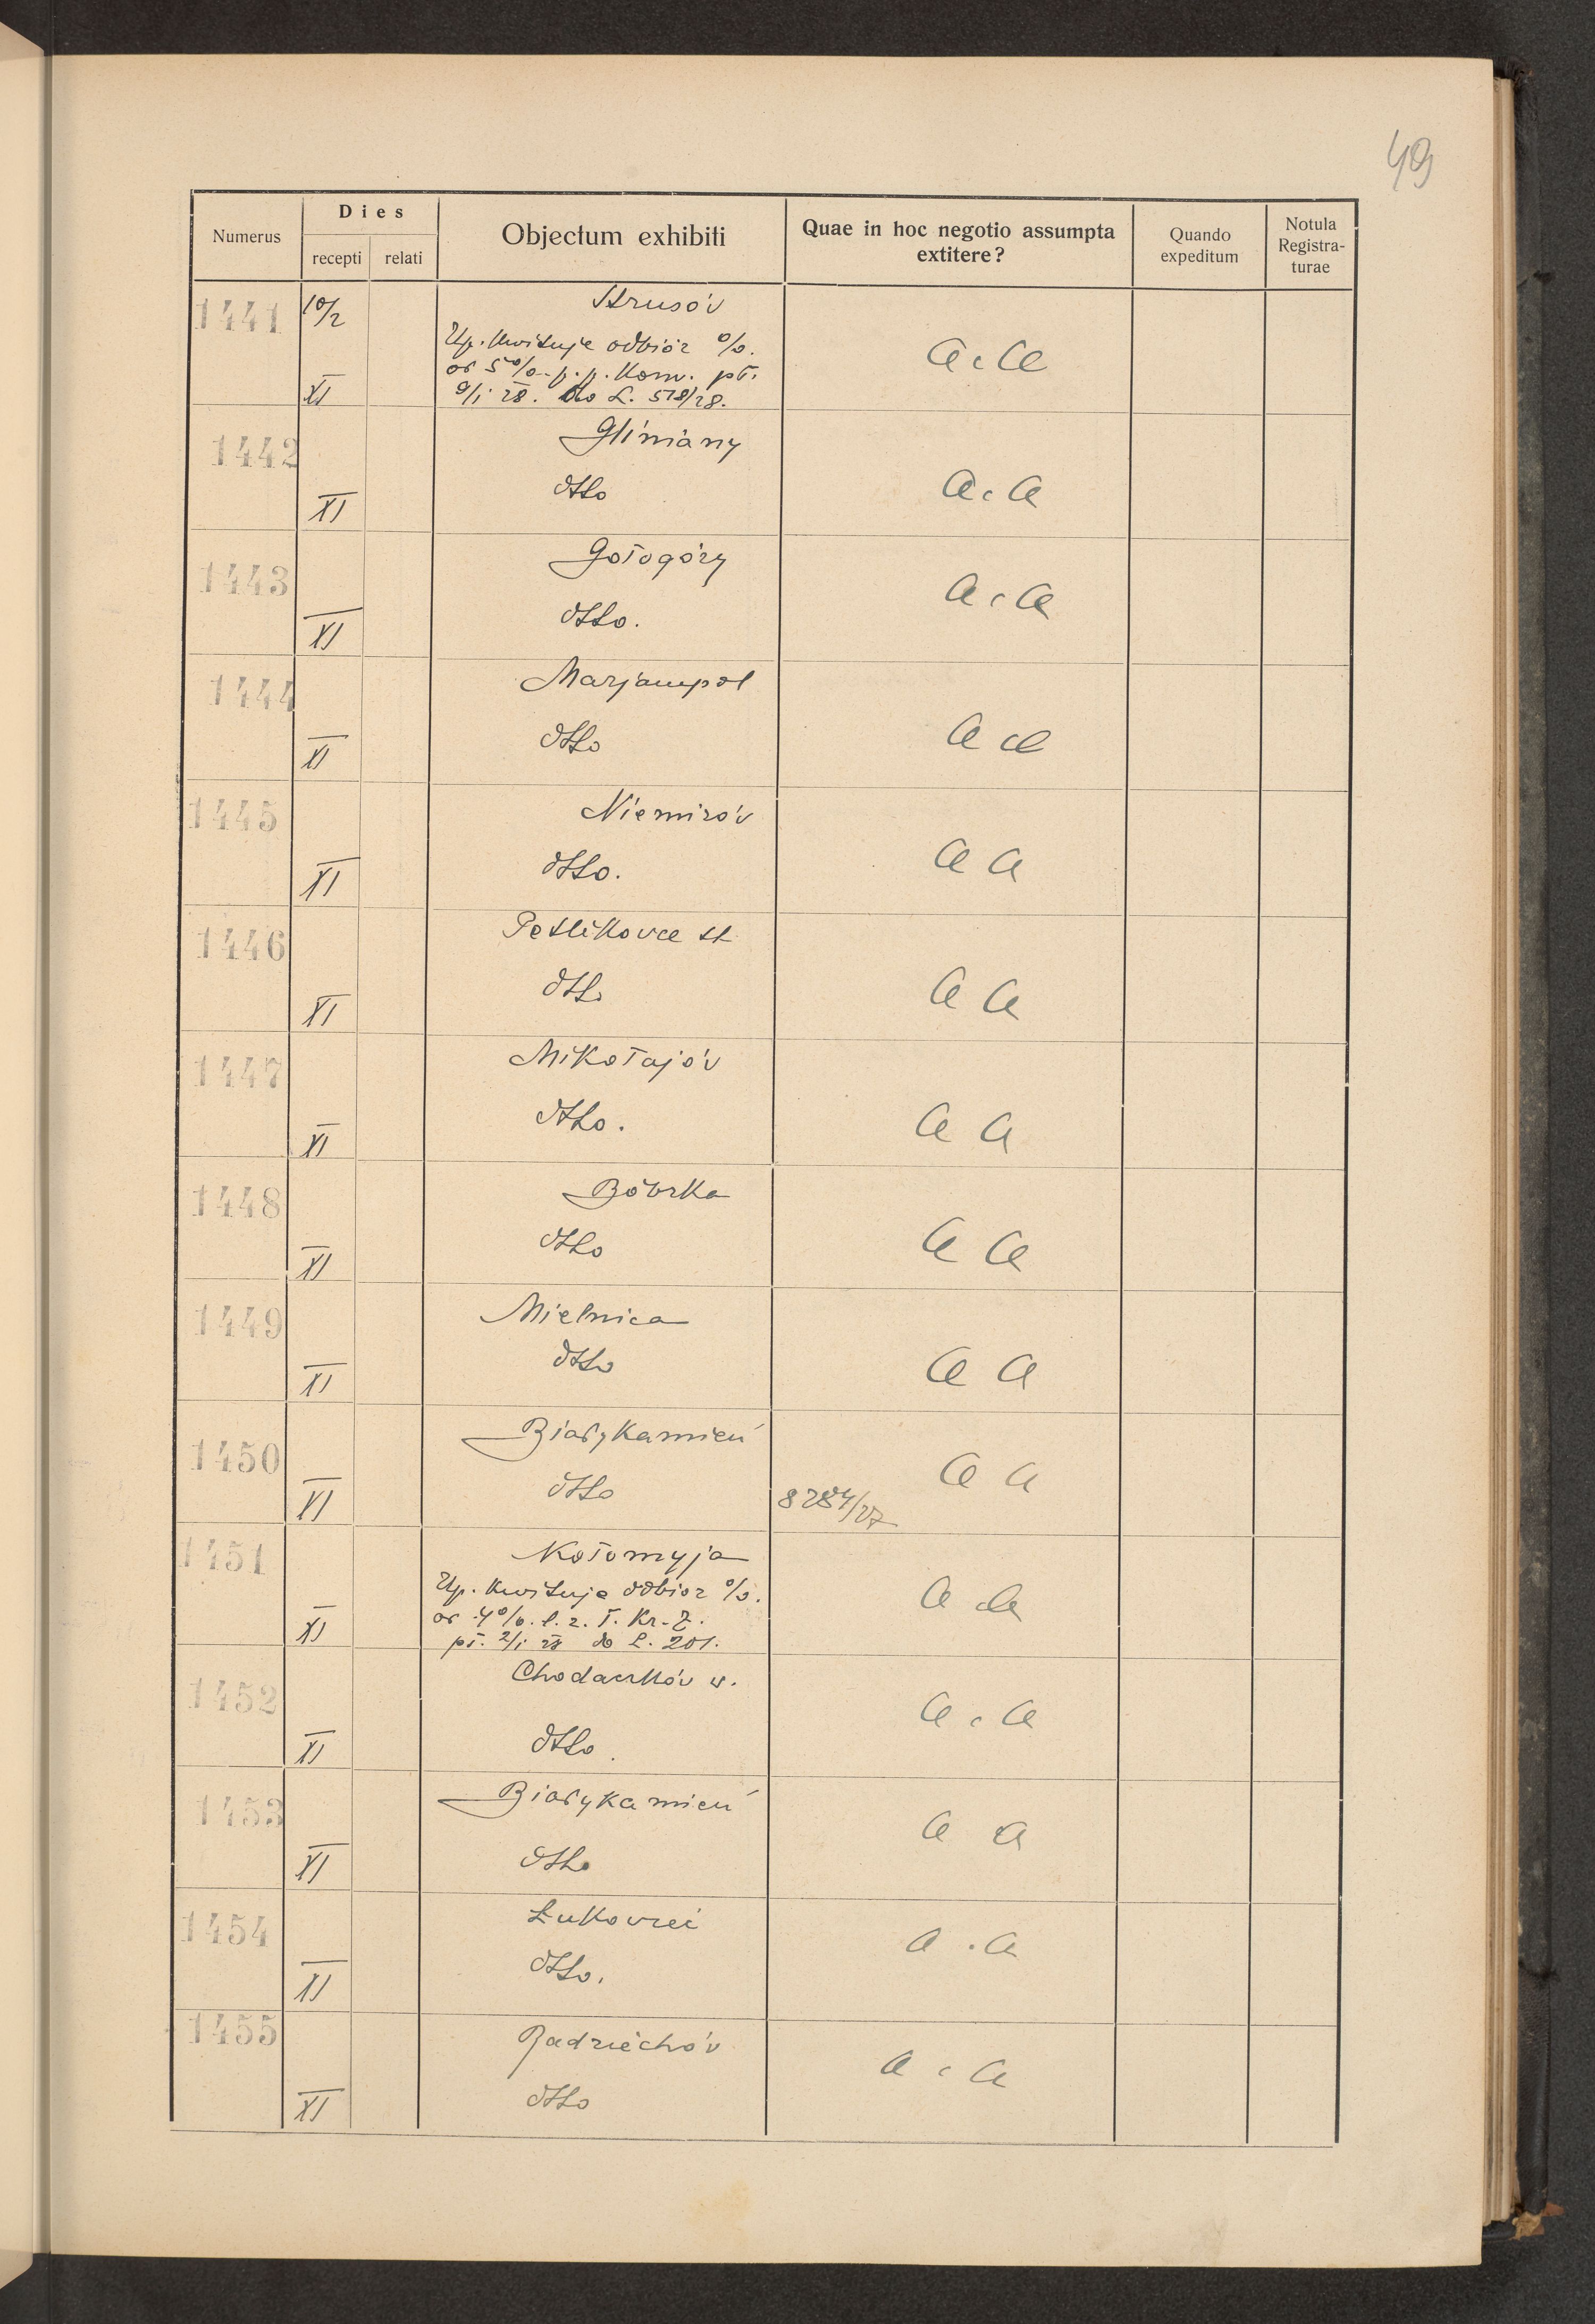 49
Numerus
Dies
recepti
relati
Objectum exhibiti
Quae in hoc negotio assumpta
extitere?
Quando
expeditum
Notula
Registra-
turae
1441 10/2 Strusów
Up. kwituje odbiór %.
od 5% p. p. Konw. pł.
XI 9/I 28. do L. 518/28. a. a
1442 Gliniany
XI dtto a. a
1443 Gołogóry
XI dtto. a. a
1444 Marjampol
XI dtto a a
1445 Niemirów
XI dtto. a a
1446 Petlikowce st
XI dtto a a
1447 Mikołajów
XI dtto. a a
1448 Bóbrka
XI dtto a a
1449 Mielnica
XI dtto a a
1450 Biały Kamień
XI dtto 8284/27 a a
1451 Kołomyja
Up. kwituje odbiór %.
od 4% l. z. T. Kr. Z.
XI pł. 2/I 28 do L. 201. a a
1452 Chodaczków w.
XI dtto. a. a
1453 Biały Kamień
XI dtto a a
1454 Łukowiec
XI dtto. a. a
1455 Radziechów
XI dtto a. a